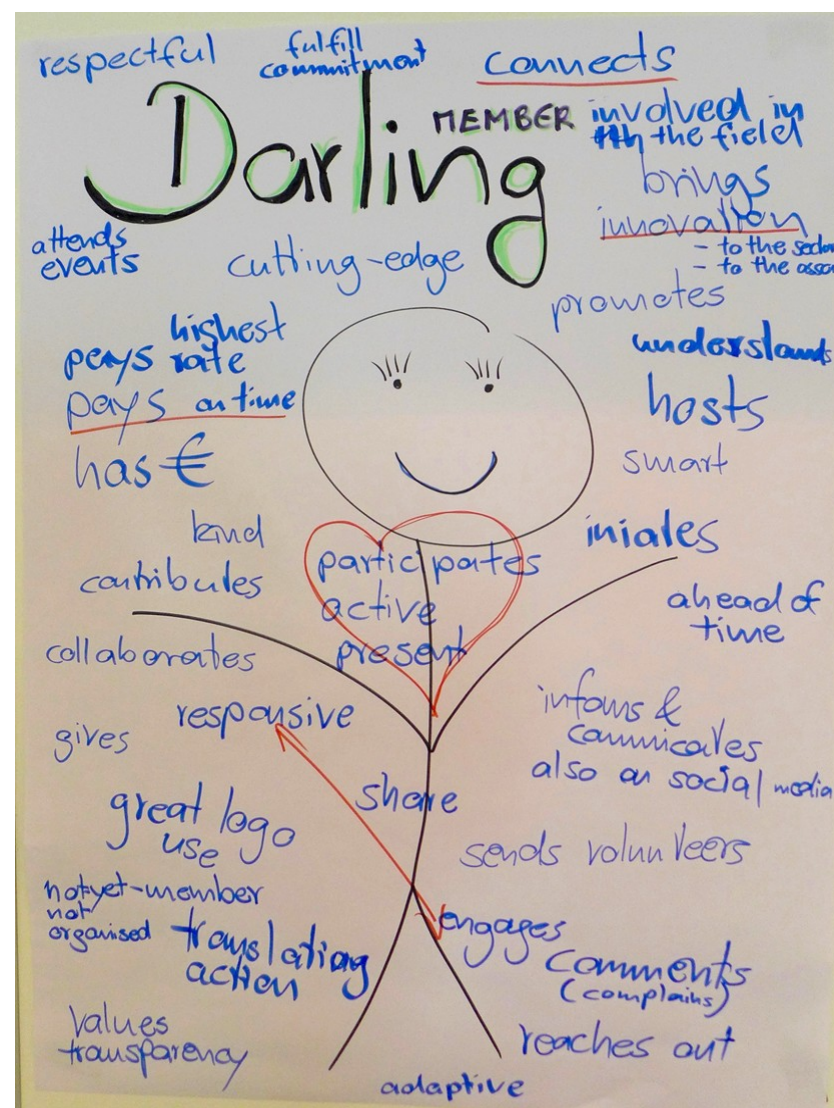 respectful
fulfill
commitment
connects
Darling
MEMBER
involved in
the field
brings
innovation
- to the sector
- to the asso
attends
events
cutting-edge
promotes
highest
pays rate
pays on time
has €
understands
hosts
smart
kind
contributes
participates
active
present
iniates
ahead of
time
collaborates
responsive
gives
infoms &
comnicates
also on social media
share
great logo
use
sends volunteers
not-yet-member
not
organised
translating
action
engages
comments
(complains)
values
transparency
reaches out
adaptive